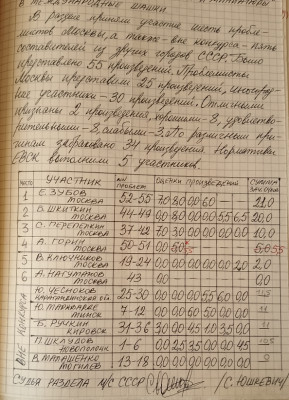 В МЕЖДУНАРОДНЫЕ ШАШКИ
В разделе приняли участие шесть пробле-
мистов Москвы, а также вне конкурса - пять
составителей из других городов СССР. Было
представлено 55 произведений. Проблемисты
Москвы представили 25 произведений, иногород-
ние участники - 30 произведений. Отличными
признаны 2 произведения, хорошими - 8, удовлетво-
рительными - 8, слабыми - 3. По различным при-
чинам забраковано 34 произведения. Нормативы
выполнили 5 участников.
МЕСТО УЧАСТНИК №№ ПРОБЛЕМ ОЦЕНКИ ПРОИЗВЕДЕНИЙ СУММА
1 Е. ЗУБОВ МОСКВА 52-55 7,0 8,0 0,0 6,0 - 21,0
2 В. ШКИТКИН МОСКВА 44-49 0,0 8,0 0,0 0,0 5,5 6,5 20,0
3 С. ПЕРЕПЁЛКИН МОСКВА 37-42 7,0 3,0 0,0 0,0 0,0 0,0 10,0
4 А. ГОРИН МОСКВА 50-51 0,0
5 В. КЛЮЧНИКОВ МОСКВА 19-24 0,0 0,0 0,0 0,0 0,0 2,0 2,0
6 А. НАГУМАНОВ МОСКВА 43 0,0 - 0,0
ВНЕ КОНКУРСА
Ю. ЧЕСНОКОВ 25-30 0,0 0,0 0,0 5,5 6,0 0,0
МИНСК 7-12 0,0 0,0 6,0 5,0 0,0 0,0
Б. РУЧКИН КИРОВСК 31-36 3,0 0,0 4,5 1,0 3,5 0,0
П. ШКЛУДОВ НОВОПОЛОЦК 1-6 0,0 2,5 3,5 0,0 0,0 4,5
В. МАЛАШЕНКО МОГИЛЕВ 13-18 0,0 0,0 0,0 0,0 0,0 0,0
СУДЬЯ РАЗДЕЛА М/С СССР /С. ЮШКЕВИЧ/